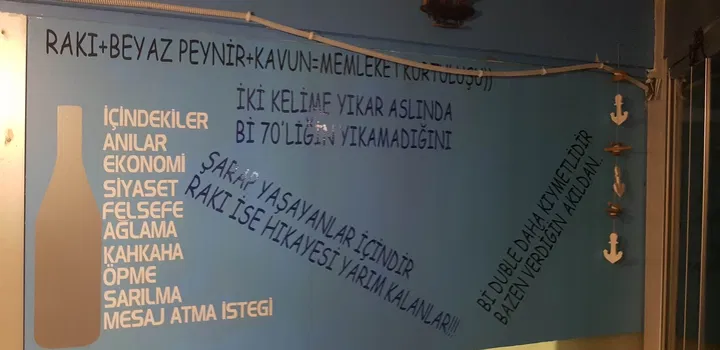 RAKI+BEYAZ PEYNİR+KAVUN=MEMLEKET KURTULUŞU))
İKİ KELİME YIKAR ASLINDA
Bİ 70'LİĞİN YIKAMADIĞINI
İÇİNDEKİLER
ANILAR
EKONOMİ
SİYASET
FELSEFE
AĞLAMA
KAHKAHA
ÖPME
SARILMA
MESAJ ATMA İSTEGİ
ŞARAP YAŞAYANLAR İÇİNDİR
RAKI İSE HİKAYESİ YARIM KALANLAR!!!
Bİ DUBLE DAHA KIYMETLİDİR
BAZEN VERDİĞİN AKILDAN..